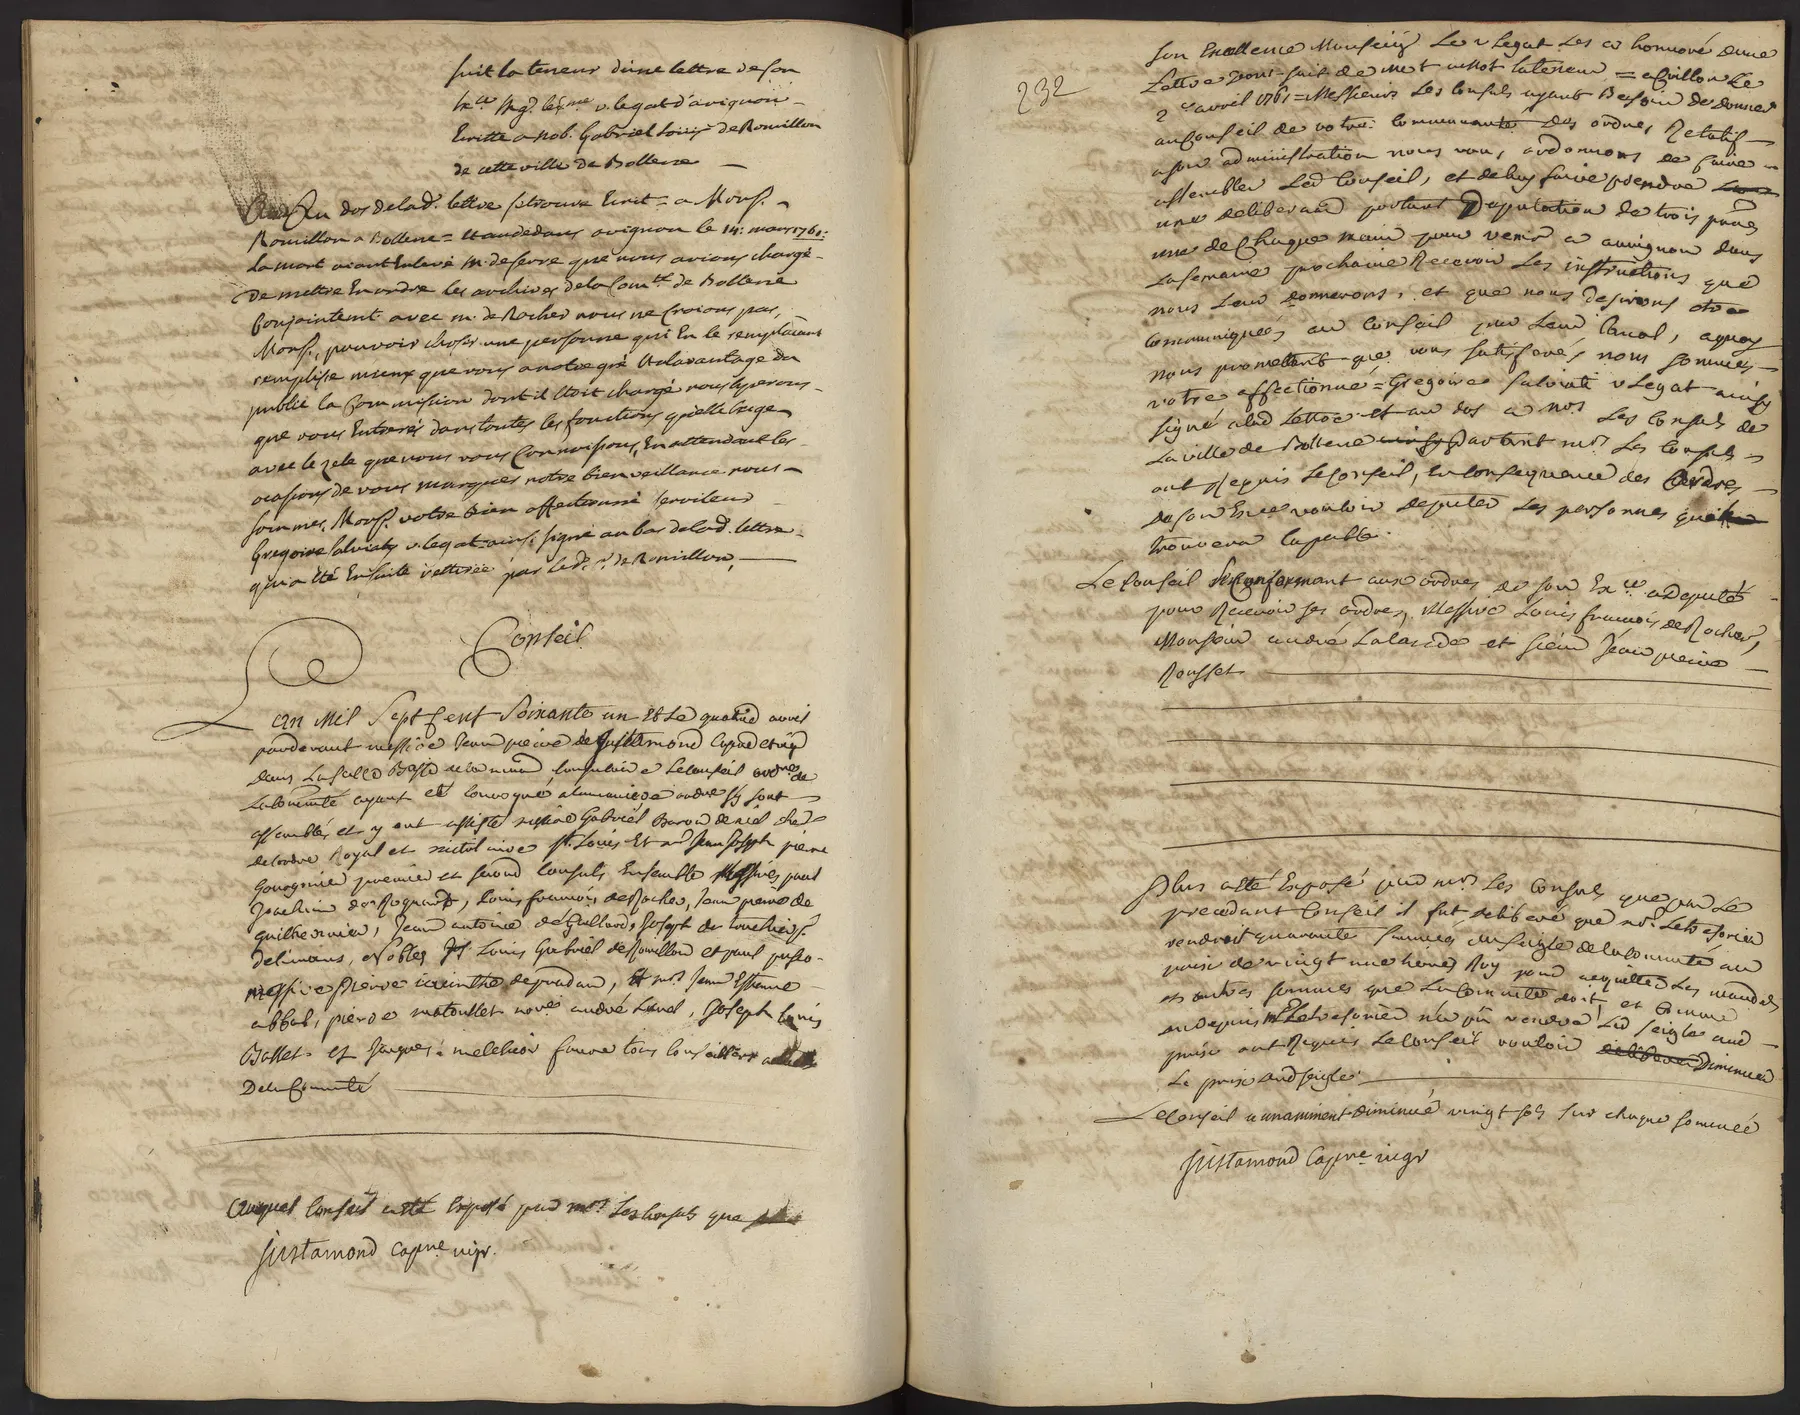 suit la teneur d'une lettre de son
Exce Mgr. v. legat d'avignon
Ecritte a nob. Gabriel Louis de Rouillon
de cette ville de Bollene
Au dos de lad. lettre se trouve Ecrit = a Monsr.
Rouillon a Bollene = et audedans avignon le 14: mars 1761:
La mort aiant Enlevé Mr. de serre que nous avions chargé
De mettre En ordre les archives de la Comté de Bollene
Conjointemt. avec mr. de Rocher nous ne croions pas,
Monsr., pouvoir choisir une personne qui En le remplaçant
remplisse mieux que vous a notre gré et a l'avantage du
public la Commission dont il étoit chargé nous esperons
que vous Entrerés dans toutes les fonctions qu'elle Exige
avec le zele que nous vous Connoissons, En attendant les
ocasions de vous marquer notre bienveillance nous
sommes, Monsr. votre bien affectionné serviteur
Gregoire Salviaty v. legat ainsi signé au bas de lad. lettre
qui a été Ensuite retirée par led. sr. de Rouillon,
Conseil
L'an Mil Sept Cent Soixante un Et Le quatrie avril
pardevant messire Jean pierre de Justamond Capne et vigr
dans La salle Basse de la maison Consulaire Le Conseil ordre de
La Comunté ayant eté Convoqué a la maniere ordre s'y sont
assemblés et y ont assisté messire Gabriel Baron de niel che
de l'ordre Royal et militaire st. Louis Et mr Jean Joseph pierre
premier et second Consuls, Ensemble Messires paul
Joachim de Roquard, Louis francois de Rocher, Jean pierre de
Guilhermier, Jean antoine de Gaillard, Joseph du
delimans, Nobles Louis Gabriel de Rouillon et paul
messire pierre iacinthe de pradan, Et mrs Jean Estienne
abbal, pierre matoullet nore. andré Lunel, Joseph Louis
Ballet et Jacques melchior faure tous Conseillers
De la Comunté
Auquel Conseil a eté Exposé par mrs. Les Consuls que
Justamond Capne. vigr.
232
Son Excellence Monseigr Le v Legat Les a honnoré d'une
Lettre dont suit de mot a mot la teneur = avignon Le
2 avril 1761 = Messieurs Les Consuls ayant Besoin de donner
au Conseil de votre Communauté Des ordres Relatifs
a son administration nous vous ordonnons de faire
assembler Led Conseil, et de luy faire prendre
une deliberaon portant Deputation de trois pnes
une de Chaque main pour venir a avignon dans
La semaine prochaine Recevoir Les instructions que
nous Leur donnerons, et que nous desirons etre
communiquées au Conseil par Leur Canal, a quoy
nous promettant que vous satisferés, nous sommes,
votre affectionné = Gregoire Salviati v Legat ainsy
signé a lad Lettre et au dos a mrs Les Consuls de
La ville de Bollene partant mrs. Les Consuls
ont Requis Le Conseil, En Consequence des Ordres
de son Exce vouloir deputer Les personnes que
trouvera capable.
Le Conseil se Conformant aux ordres de son Exce. a Deputé
pour Recevoir ses ordres, Messire Louis francois de Rocher,
Monsieur andré Lalande et sieur Jean pierre
Rousset
Plus a eté Exposé par mrs. Les Consuls que par Le
precedant Conseil il fut deliberé que mr. Le tresorier
vendroit quarante sommées du seigle de la Comunté au
prix de vingt une livres Roy pour acquitter Les mandats
et autres sommes que La Comunté doit, et Comme
du depuis Mr Le tresorier n'a pu vendre Led seigle aud
prix ont Requis Le Conseil vouloir Diminuer
Le prix dud seigle
Le Conseil a unaniment diminué vingt sols sur chaque sommée
Justamond Capne vigr